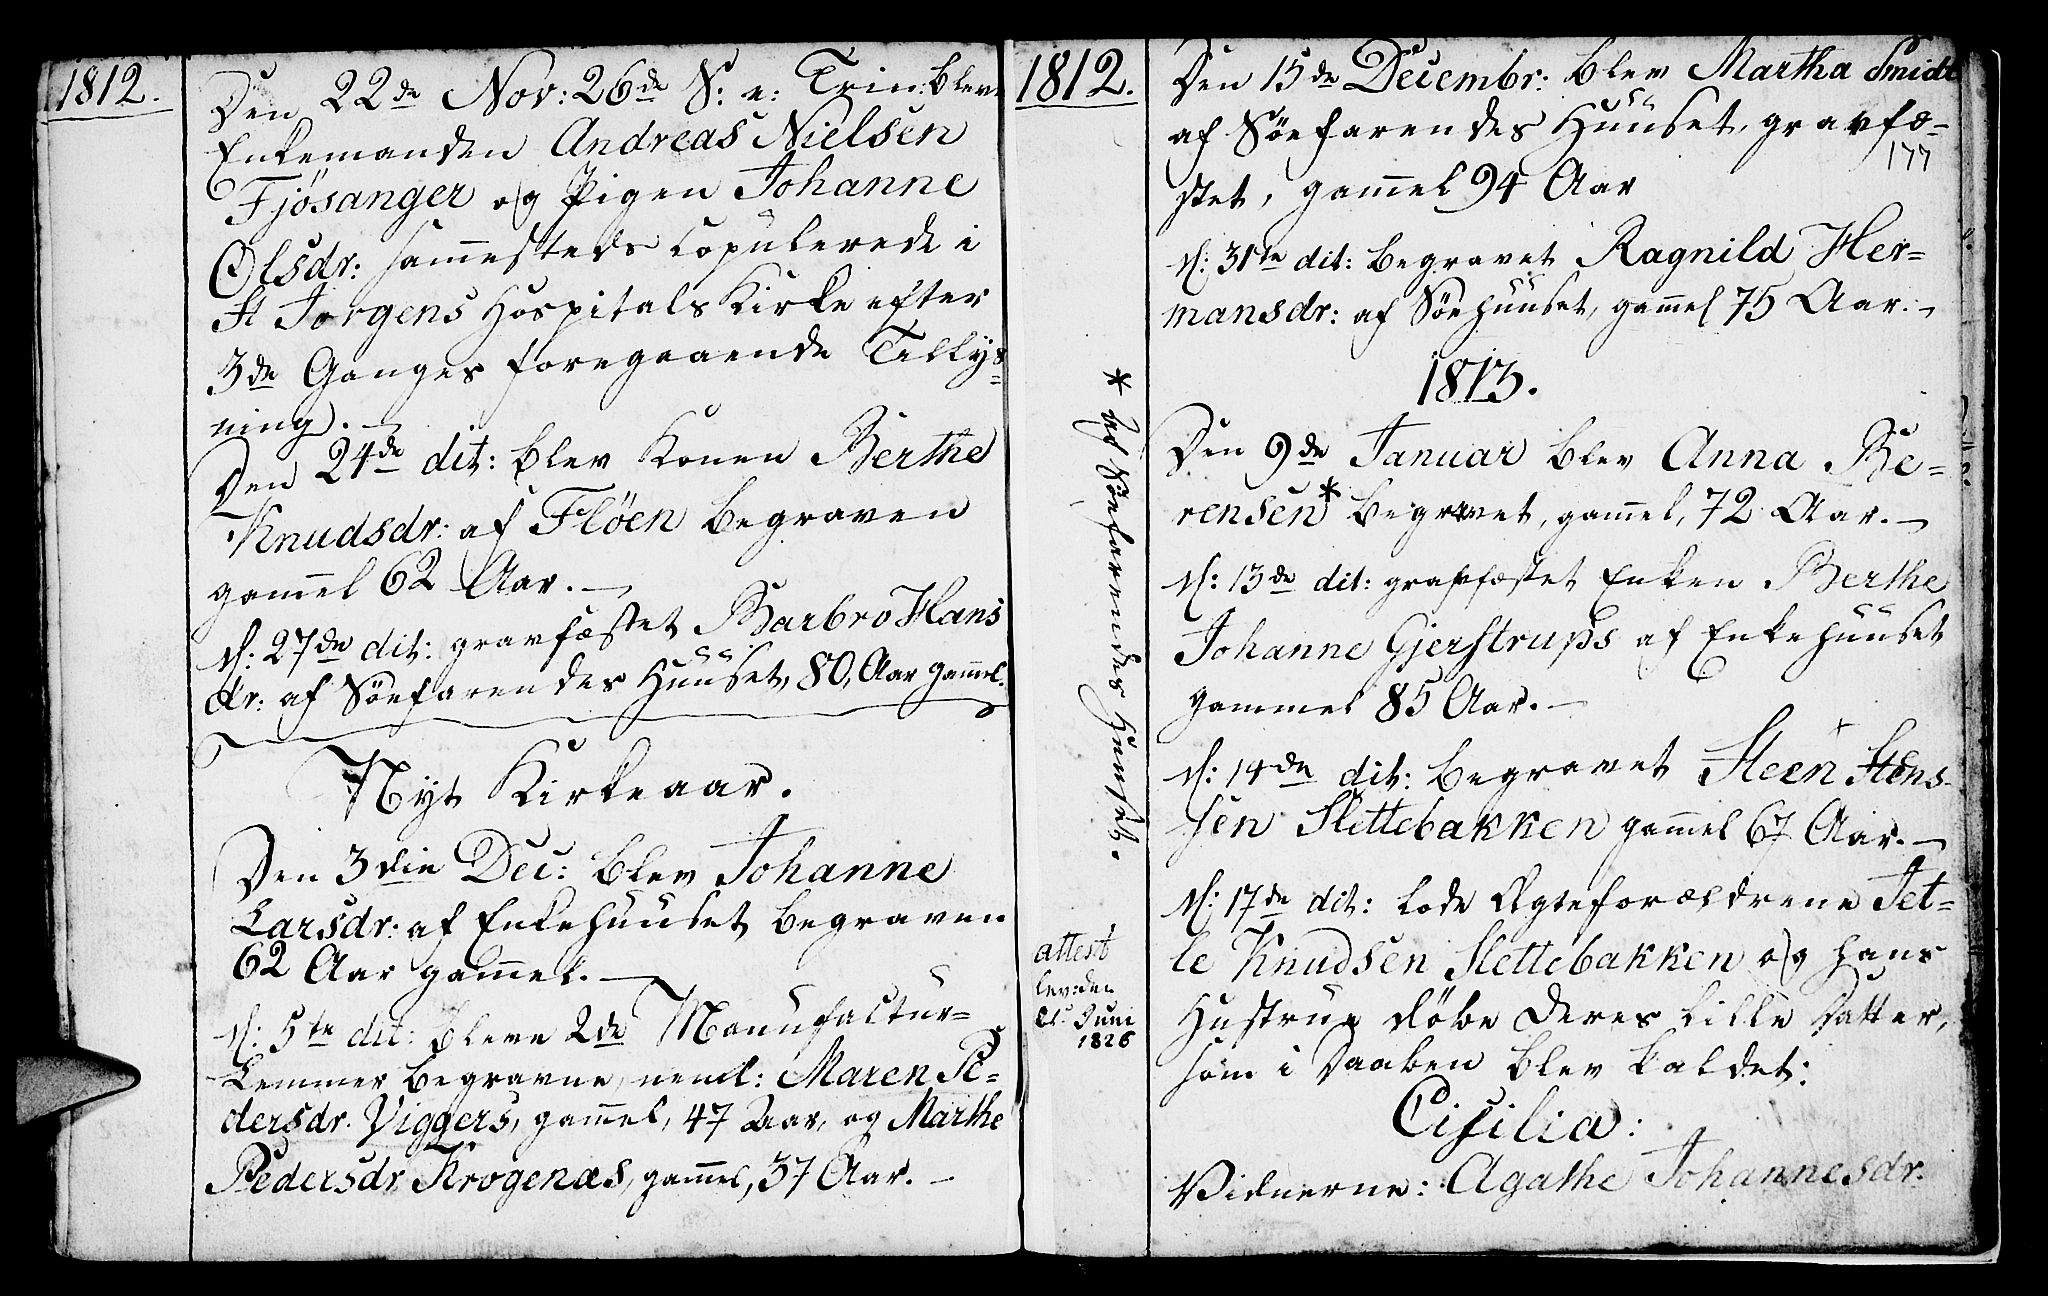 1812.
Den 22de Nov: 26de S: e: Trin: bleve
Enkemanden Andreas Nielsen
Fjösanger og Pigen Johanne
Olsdr: sammesteds copulerede i
St Jørgens Hospitals Kirke efter
3de Ganges foregaaende Tillys=
ning. —
Den 24de dit: blev Konen Berthe
Knudsdr: af Flöen begraven
gammel 62 Aar. —
d: 27de dit: gravfæstet Barbro Hans
dr: af Söefarendes Huuset, 80, Aar gammel.
Nyt Kirkeaar.
Den 3die Dec: blev Johanne
Larsdr: af Enkehuuset begraven
62 Aar gammel. —
d: 5te dit: bleve 2de Manufactur=
Lemmer begravne, neml: Maren Pe=
dersdr. Viggers, gammel, 47 Aar, og Marthe
Pedersdr Krogenæs, gammel, 37 Aar. —
1812.
* af Söefarendes Huuset.
attest
lev: den
21. Juni
1826
Den 15de Decembr: blev Martha Smidt
af Söefarendes Huuset, gravfæ=
177
stet, gammel 94 Aar
d: 31te dit: begravet Ragnild Her=
mansdr: af Söehuuset, gammel 75 Aar. —
1813.
Den 9de Januar blev Anna Be=
rensen* begravet, gammel, 72 Aar. —
d: 13de dit: gravfæstet Enken Berthe
Johanne Gjerstrups af Enkehuuset
gammel 85 Aar. —
d: 14de dit: begravet Steen Stens
sen Slettebakken gammel 67 Aar. —
d: 17de dit: lode Ægteforældrene Tet=
le Knudsen Slettebakken og hans
Hustrue döbe deres lille Datter,
som i Daaben blev kaldet:
Cisilia:
Vidnerne: Agathe Johannesdr.